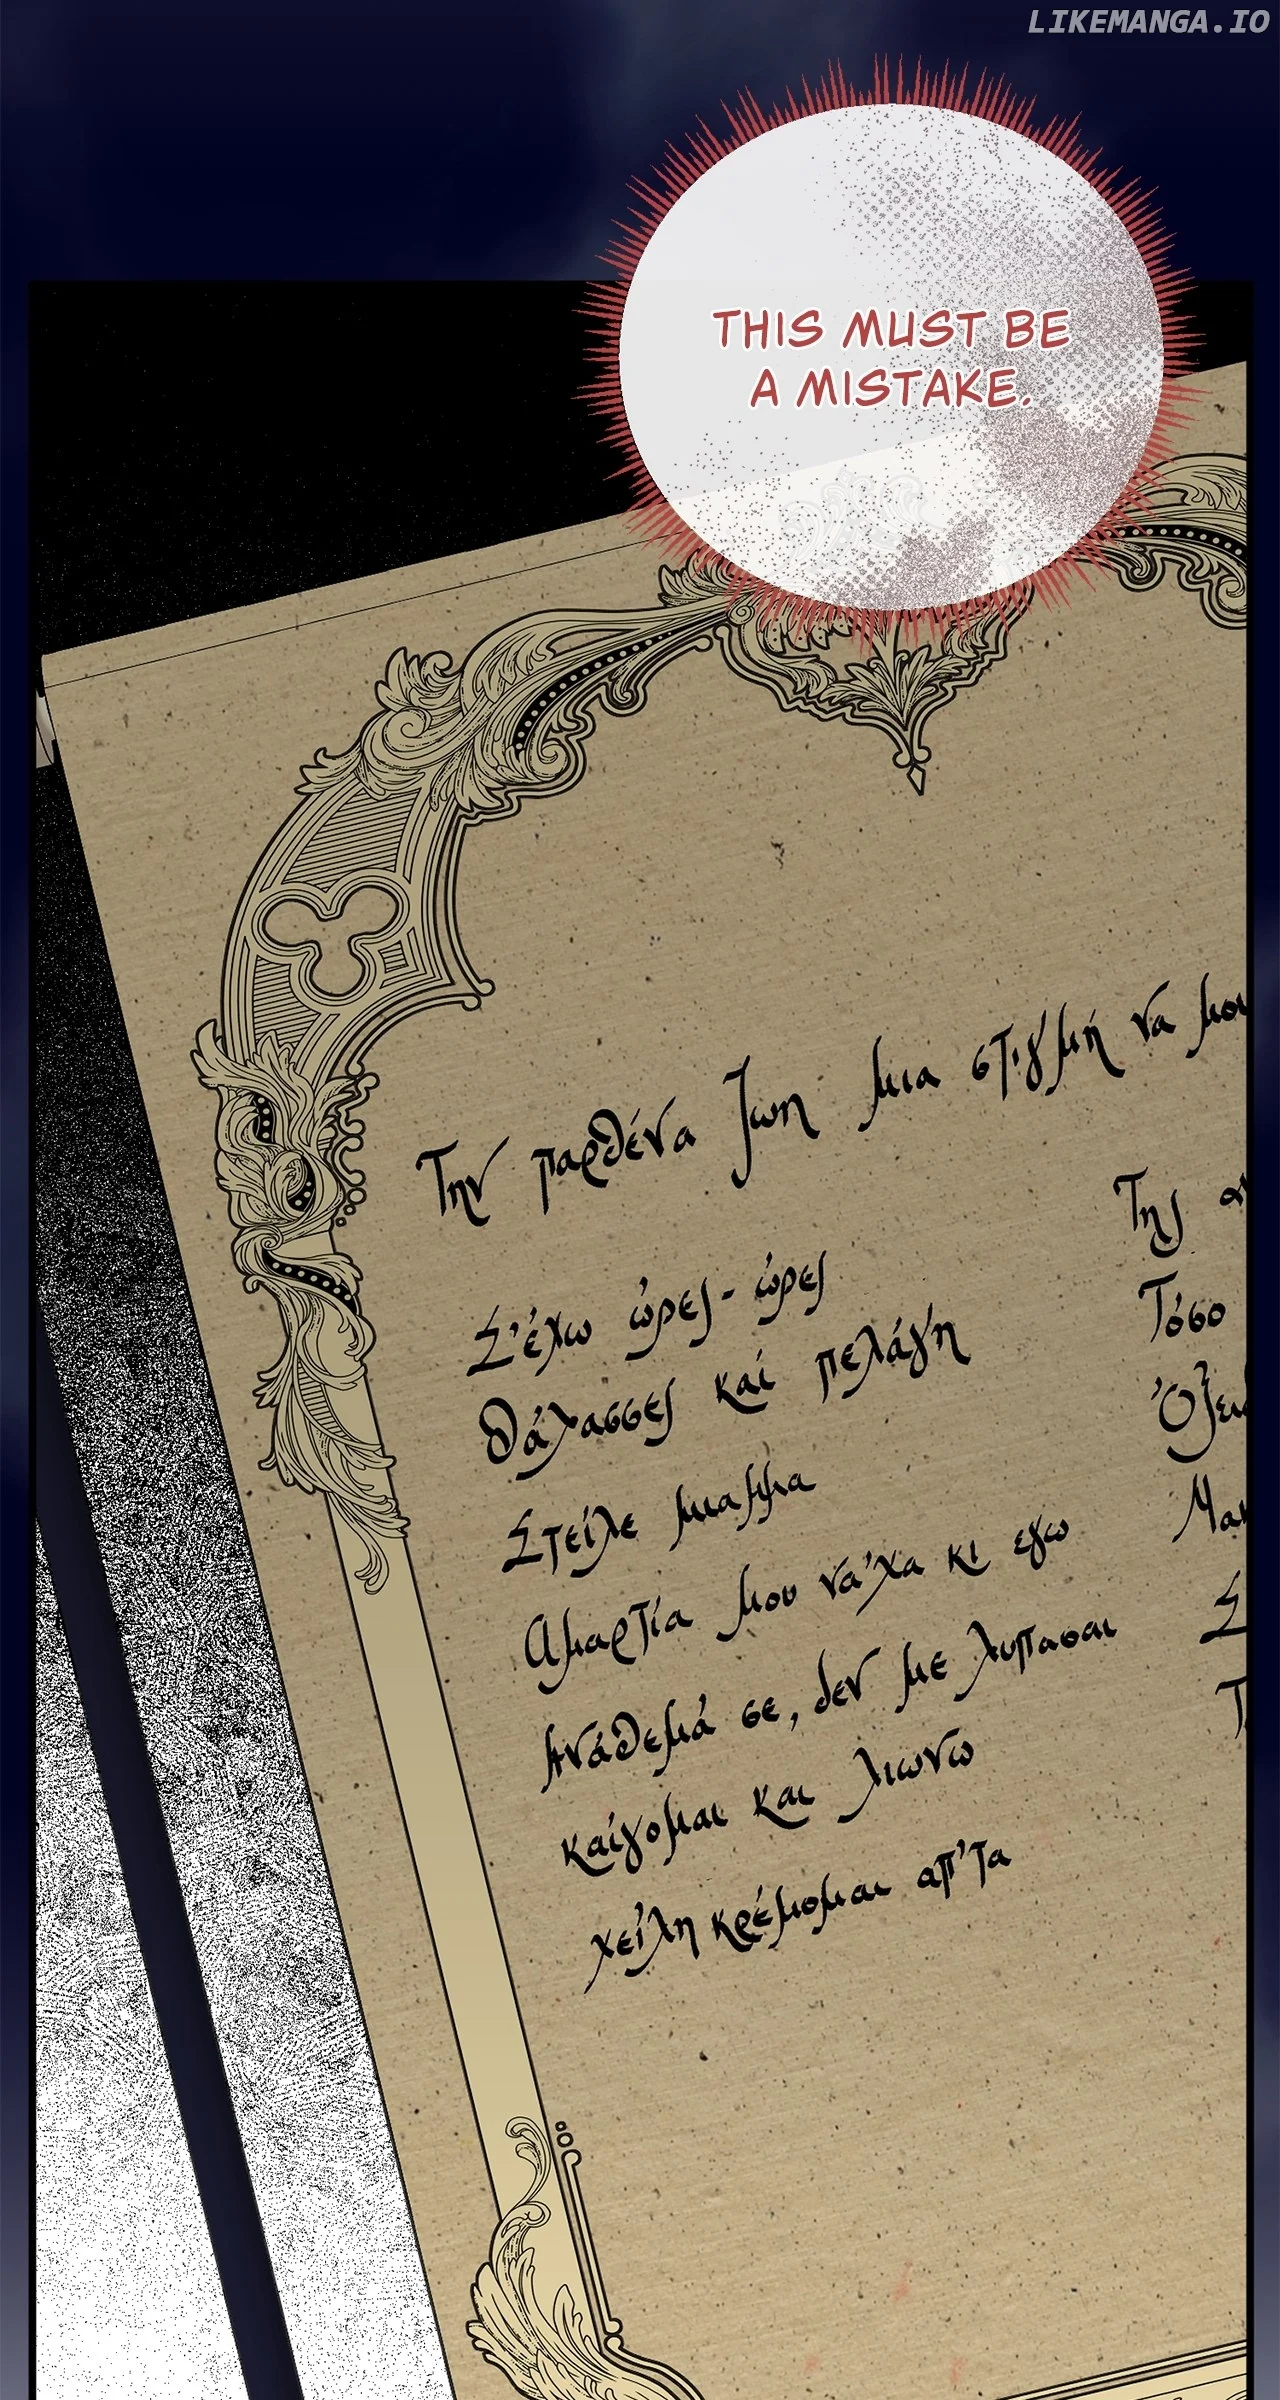 LIKEMANGA.IO
THIS MUST BE
A MISTAKE.
Την παρθένα ζωη μια στιγμή να μου
Σ'έχω ὡρες-ὡρες
Θάλασσες καί πελάγη
Στείλε μιαμμα
Αμαρτία μου νά'χα κι εγω
Ανάθεμά σε, δεν με λυπασαι
καίγομαι και λιωνω
χείλη κρέμομαι απ'τα
Της
Τόσο